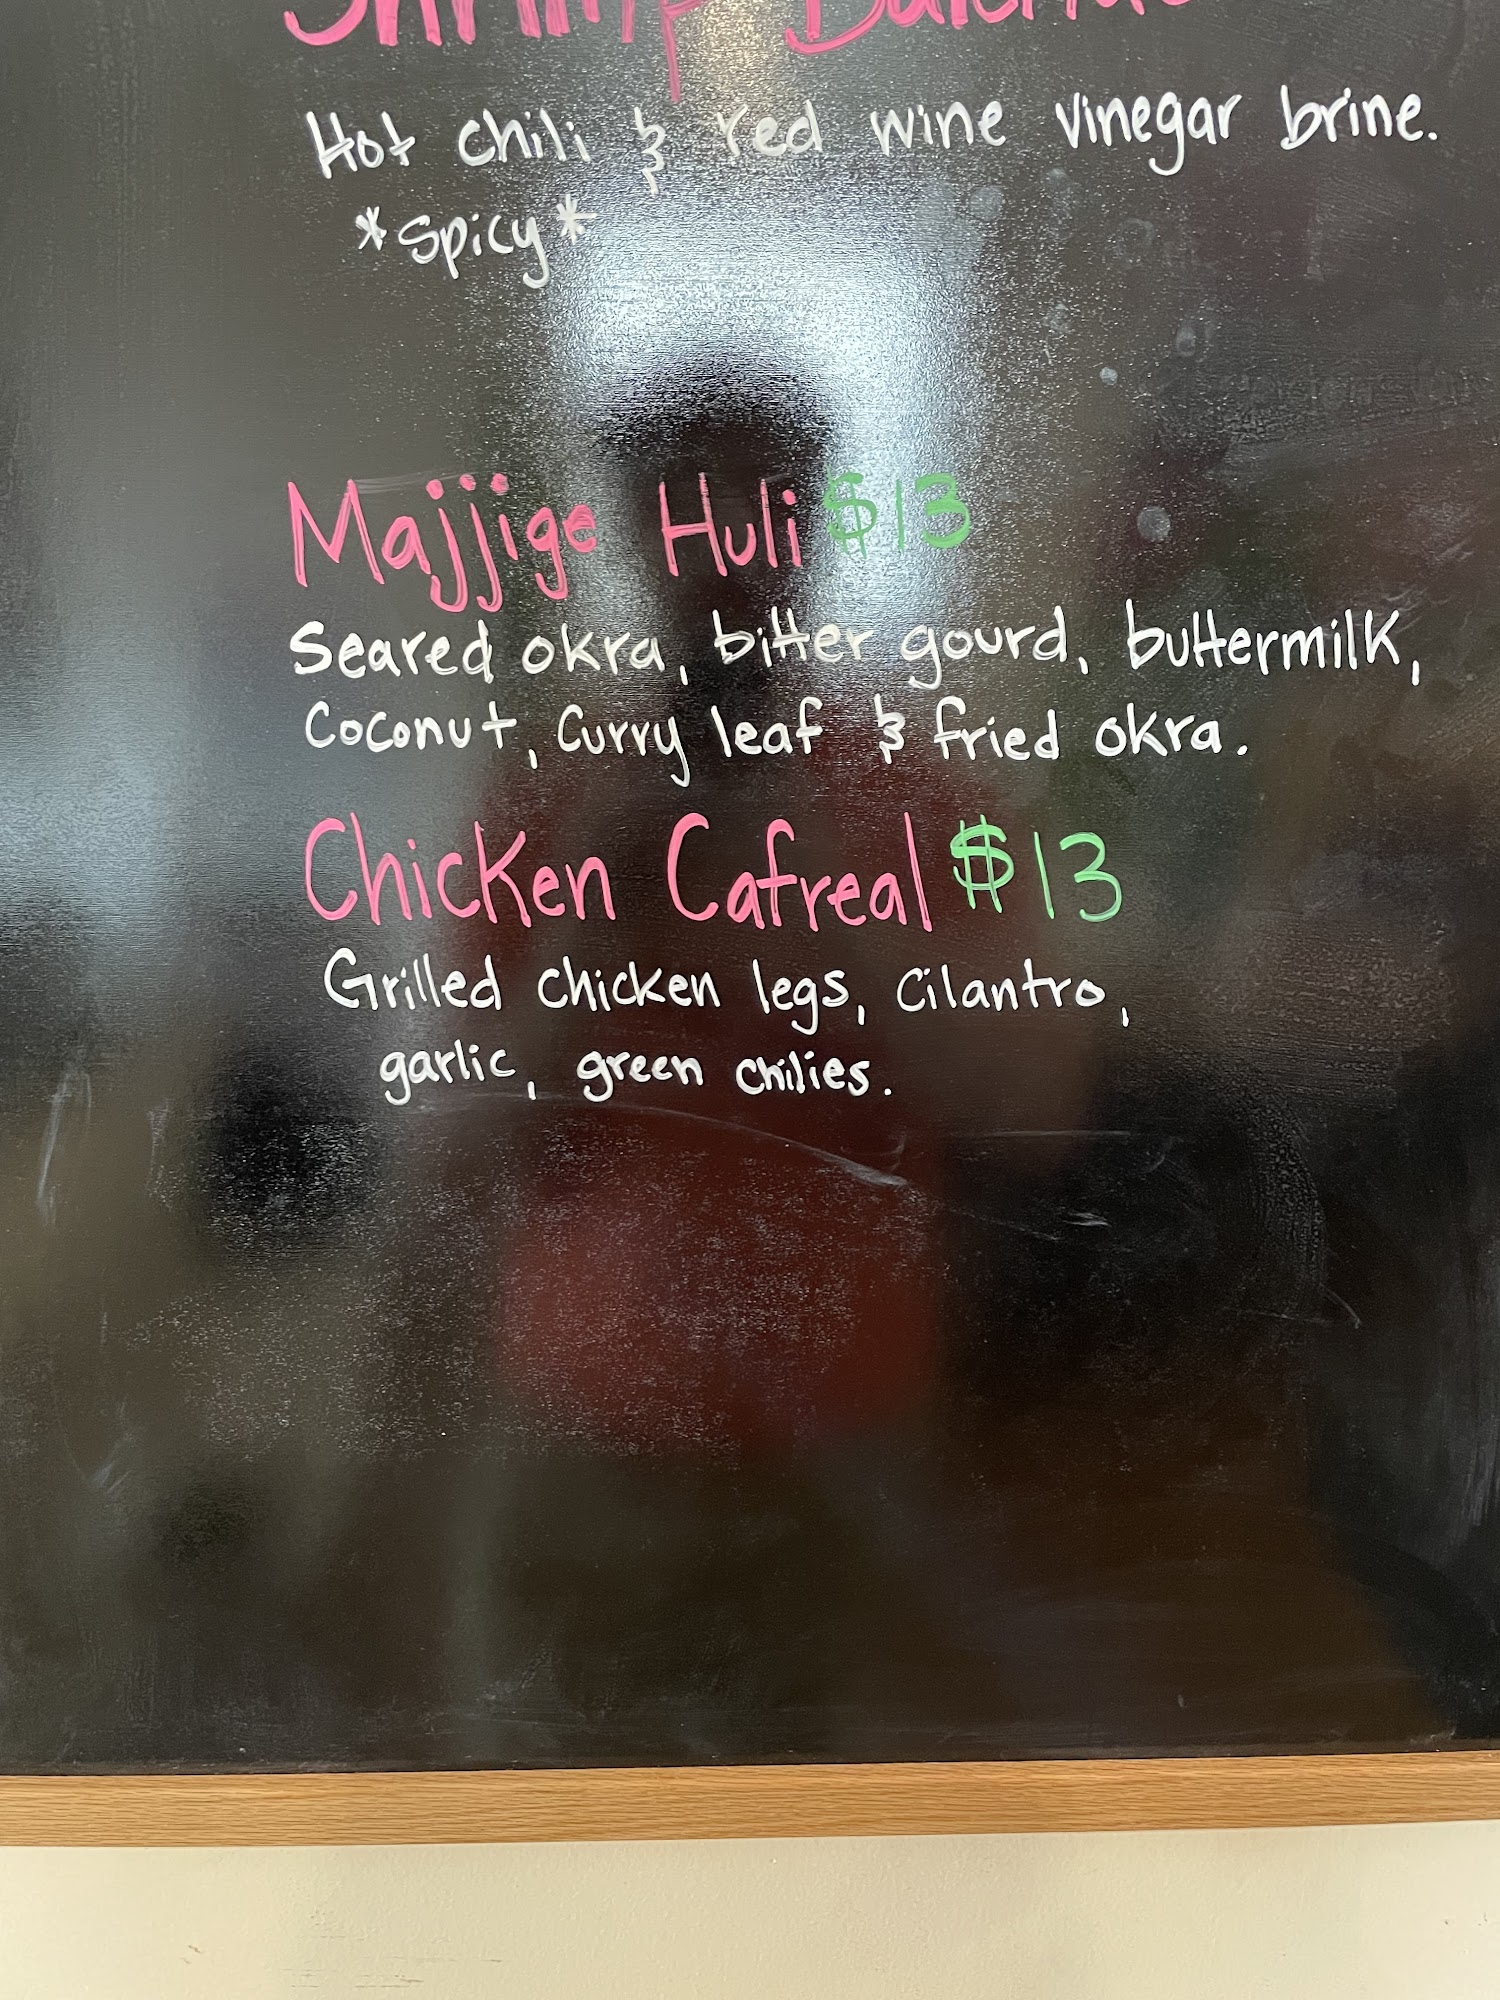 Shrimp
Hot chili & red wine vinegar brine.
*Spicy*
Majjige Huli $13
Seared okra, bitter gourd, buttermilk,
Coconut, Curry leaf & fried okra.
Chicken Cafreal $13
Grilled chicken legs, Cilantro,
garlic, green chilies.